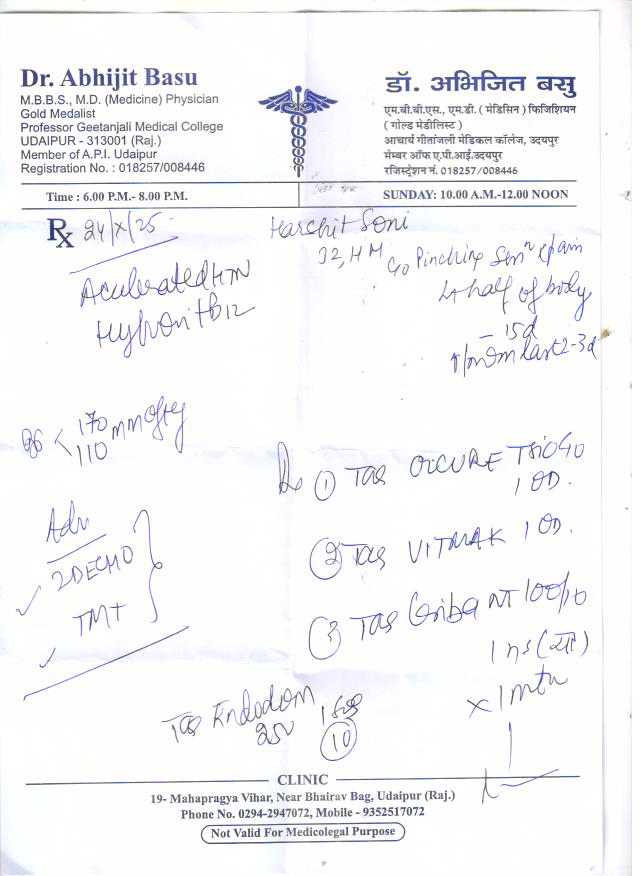 Dr. Abhijit Basu
M.B.B.S., M.D. (Medicine) Physician
Gold Medalist
Professor Geetanjali Medical College
UDAIPUR - 313001 (Raj.)
Member of A.P.I. Udaipur
Registration No. : 018257/008446
डॉ. अभिजित बसु
एम.बी.बी.एस., एम.डी. ( मेडिसिन ) फिजिशियन
( गोल्ड मेडीलिस्ट )
आचार्य गीतांजली मेडिकल कॉलेज, उदयपुर
मेम्बर ऑफ ए.पी.आई.उदयपुर
रजिस्ट्रेशन नं. 018257/008446
Time : 6.00 P.M.- 8.00 P.M.
SUNDAY: 10.00 A.M.-12.00 NOON
Rx 24/X/25
Harchit Soni
32, M
C/o Pinching Senⁿ pain
half of body
- 15d
last 2-3d
HTN
B12
170 mmofHg
110
Adv
2DECHO
TMT
Rx ① TAB OLCURE TRIO 40
1 OD.
② TAB VITMAK 1 OD.
③ TAB NT 100/10
1 HS
x 1 mth
TAB
250
⑩
CLINIC
19- Mahapragya Vihar, Near Bhairav Bag, Udaipur (Raj.)
Phone No. 0294-2947072, Mobile - 9352517072
Not Valid For Medicolegal Purpose